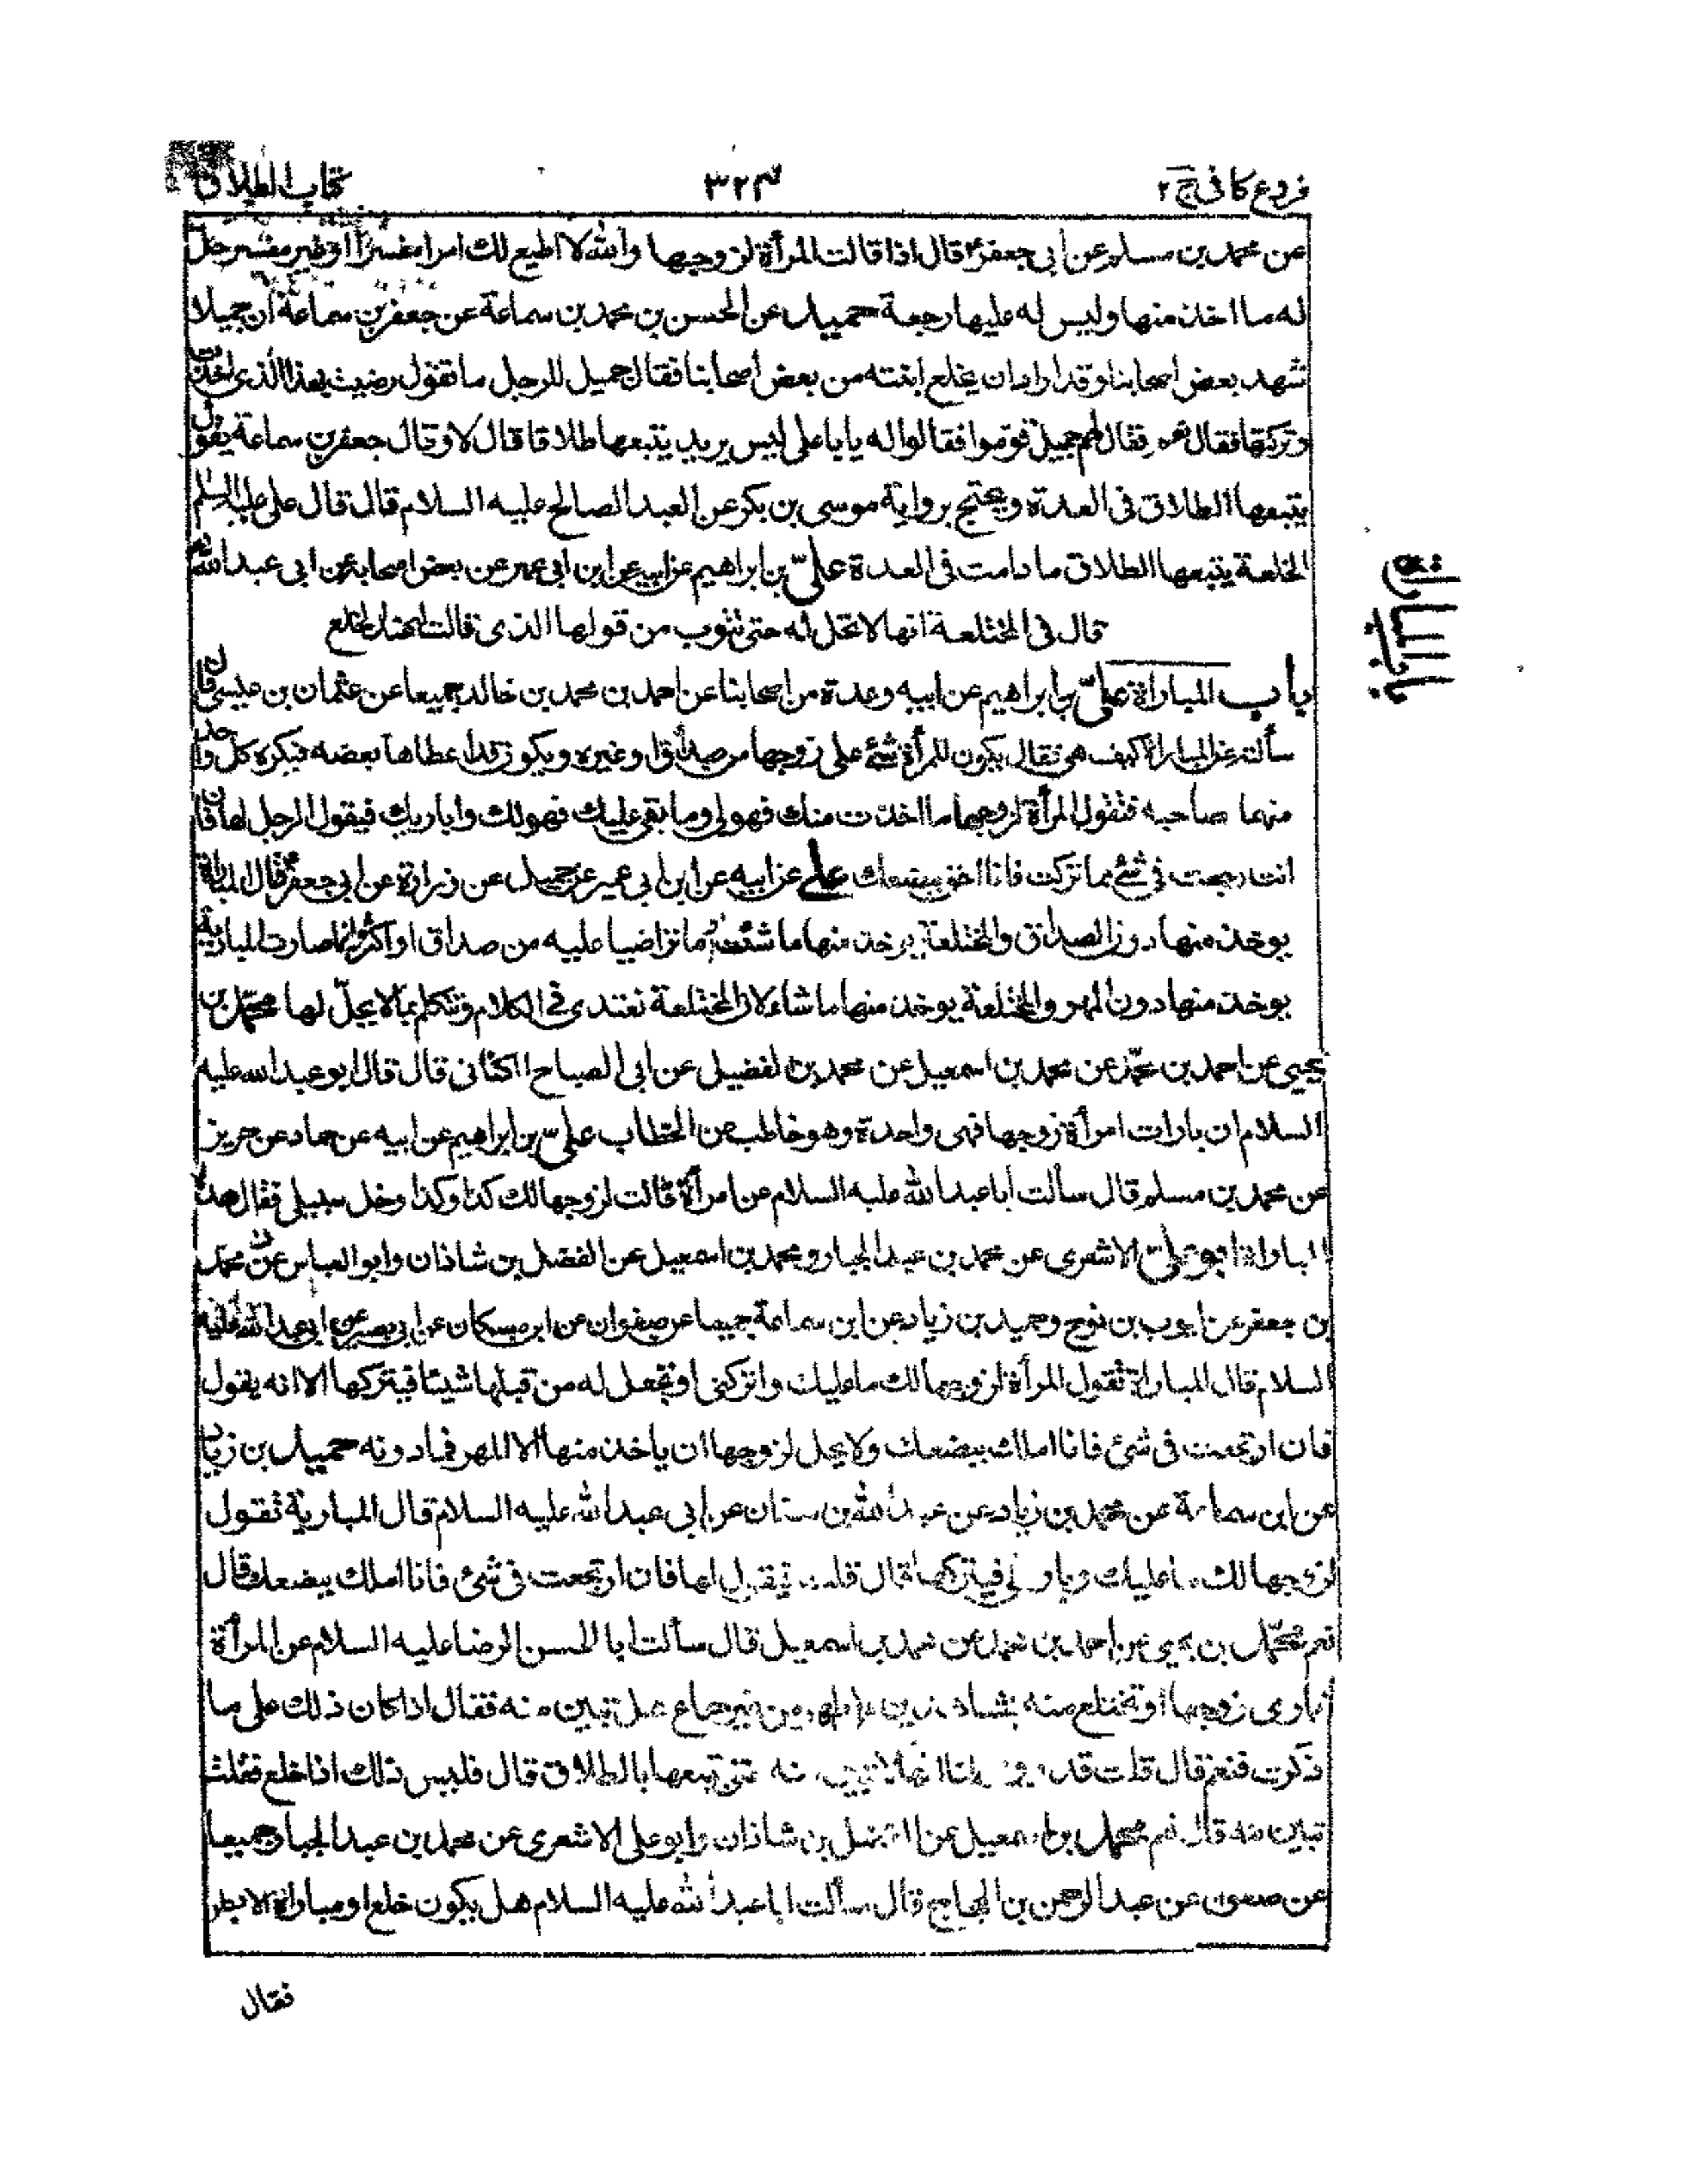 فروع كافى ج ٢
٣٢٣
كتاب الطلاق
عن محمد بن مسلم عن أبى جعفرؑ قال اذا قالت المرأة لزوجها والله لا اطيع لك امرا مفسرا او غير مفسر حل
له ما اخذ منها وليس له عليها رجعة حميد عن الحسن بن محمد بن سماعة عن جعفر بن سماعة ان جميلا
شهد بعض اصحابنا وقد اراد ان يخلع ابنته من بعض اصحابنا فقال جميل للرجل ما تقول رضيت بهذا الذى اخذت
وتركتها فقال نعم فقال لهم جميل قوموا فقالوا له يا با على ليس يريد يتبعها طلاقا قال لا وقال جعفر بن سماعة يقول
يتبعها الطلاق فى العدة ويحتج برواية موسى بن بكر عن العبد الصالح عليه السلام قال قال على عليه السلم
المختلعة يتبعها الطلاق ما دامت فى العدة علىّ بن ابراهيم عن ابيه عن ابن ابى عمير عن بعض اصحابه عن ابى عبد اللهؑ
قال فى المختلعة انها لا تحل له حتى تتوب من قولها الذى قالت له عند الخلع
باب المباراة علىّ بن ابراهيم عن ابيه وعدة من اصحابنا عن احمد بن محمد بن خالد جميعا عن عثمان بن عيسى قال
باب المباراة
سألته عن المباراة كيف هى فقال يكون للمرأة شئ على زوجها من صداق او غيره ويكون قد اعطاها بعضه فيكره كل واحد
منهما صاحبه فتقول المرأة لزوجها ما اخذت منك فهو لى وما بقى عليك فهو لك واباريك فيقول الرجل لها فان
انت رجعت فى شئ مما تركت فانا احق ببضعك على عن ابيه عن ابن ابى عمير عن جميل عن زرارة عن ابى جعفرؑ قال المباراة
يوخذ منها دون الصداق والمختلعة يوخذ منها ما شئت او ما تراضيا عليه من صداق او اكثر وانما صارت المبارية
يوخذ منها دون المهر والمختلعة يوخذ منها ما شاء لان المختلعة تعتدى فى الكلام وتتكلم بما لا يحلّ لها محمّد بن
يحيى عن احمد بن محمّد عن محمد بن اسمعيل عن محمد بن الفضيل عن ابى الصباح الكنانى قال قال ابو عبد الله عليه
السلام ان بارات امرأة زوجها فهى واحدة وهو خاطب من الخطاب علىّ بن ابراهيم عن ابيه عن حماد عن حريز
عن محمد بن مسلم قال سألت ابا عبد الله عليه السلام عن امرأة قالت لزوجها لك كذا وكذا وخل سبيلى فقال هذه
المباراة ابو علىّ الاشعرى عن محمد بن عبد الجبار ومحمد بن اسمعيل عن الفضل بن شاذان وابو العباس عن محمد
بن جعفر عن ايوب بن نوح وحميد بن زياد عن ابن سماعة جميعا عن صفوان عن ابن مسكان عن ابى بصير عن ابى عبد الله عليه
السلام قال المباراة تقول المرأة لزوجها لك ما عليك واتركنى او تجعل له من قبلها شيئا فيتركها الا انه يقول
فان ارتجعت فى شئ فانا املك ببضعك ولا يحل لزوجها ان ياخذ منها الا المهر فما دونه حميد بن زياد
عن ابن سماعة عن محمد بن زياد عن عبد الله بن سنان عن ابى عبد الله عليه السلام قال المبارية تقول
لزوجها لك ما عليك وبارنى فيتركها قال قلت فيقول لها فان ارتجعت فى شئ فانا املك ببضعك قال
نعم محمّد بن يحيى عن احمد بن محمد عن محمد بن اسمعيل قال سألت ابا الحسن الرضا عليه السلام عن المرأة
تبارى زوجها او تختلع منه بشاهدين على طهر من غير جماع هل تبين منه فقال اذا كان ذلك على ما
ذكرت فنعم قال قلت قد روى لنا انها لا تبين منه حتى يتبعها بالطلاق قال فليس ذلك اذا خلع فقلت
تبين منه قال نعم محمد بن اسمعيل عن الفضل بن شاذان وابو على الاشعرى عن محمد بن عبد الجبار جميعا
عن صفوان عن عبد الرحمن بن الحجاج قال سألت ابا عبد الله عليه السلام هل يكون خلع او مباراة الا بطهر
فقال